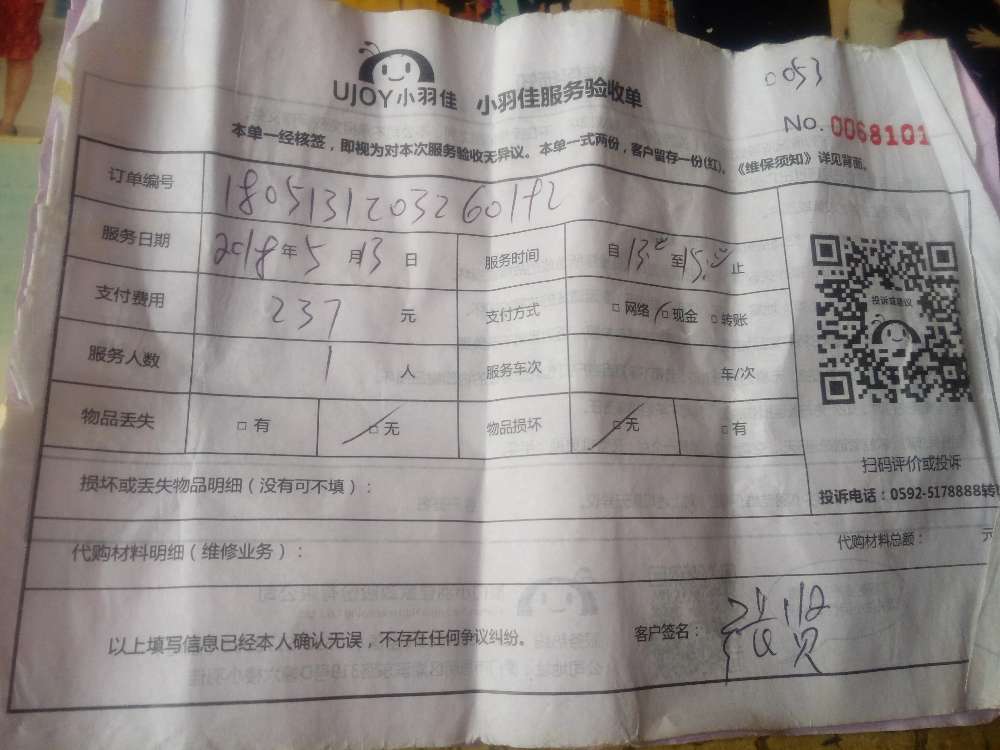 0053
UJOY小羽佳 小羽佳服务验收单
No. 0068101
本单一经核签，即视为对本次服务验收无异议。本单一式两份，客户留存一份(红)。《维保须知》详见背面。
订单编号 1805131203260192
服务日期 2018年5月13日 服务时间 自13:00至15:00止
支付费用 237元 支付方式 □网络 □现金 □转账
服务人数 1人 服务车次 车/次
物品丢失 □有 □无 物品损坏 □无 □有
投诉或建议
扫码评价或投诉
投诉电话：0592-5178888转
损坏或丢失物品明细（没有可不填）：
代购材料明细（维修业务）： 代购材料总额： 元
以上填写信息已经本人确认无误，不存在任何争议纠纷。 客户签名：